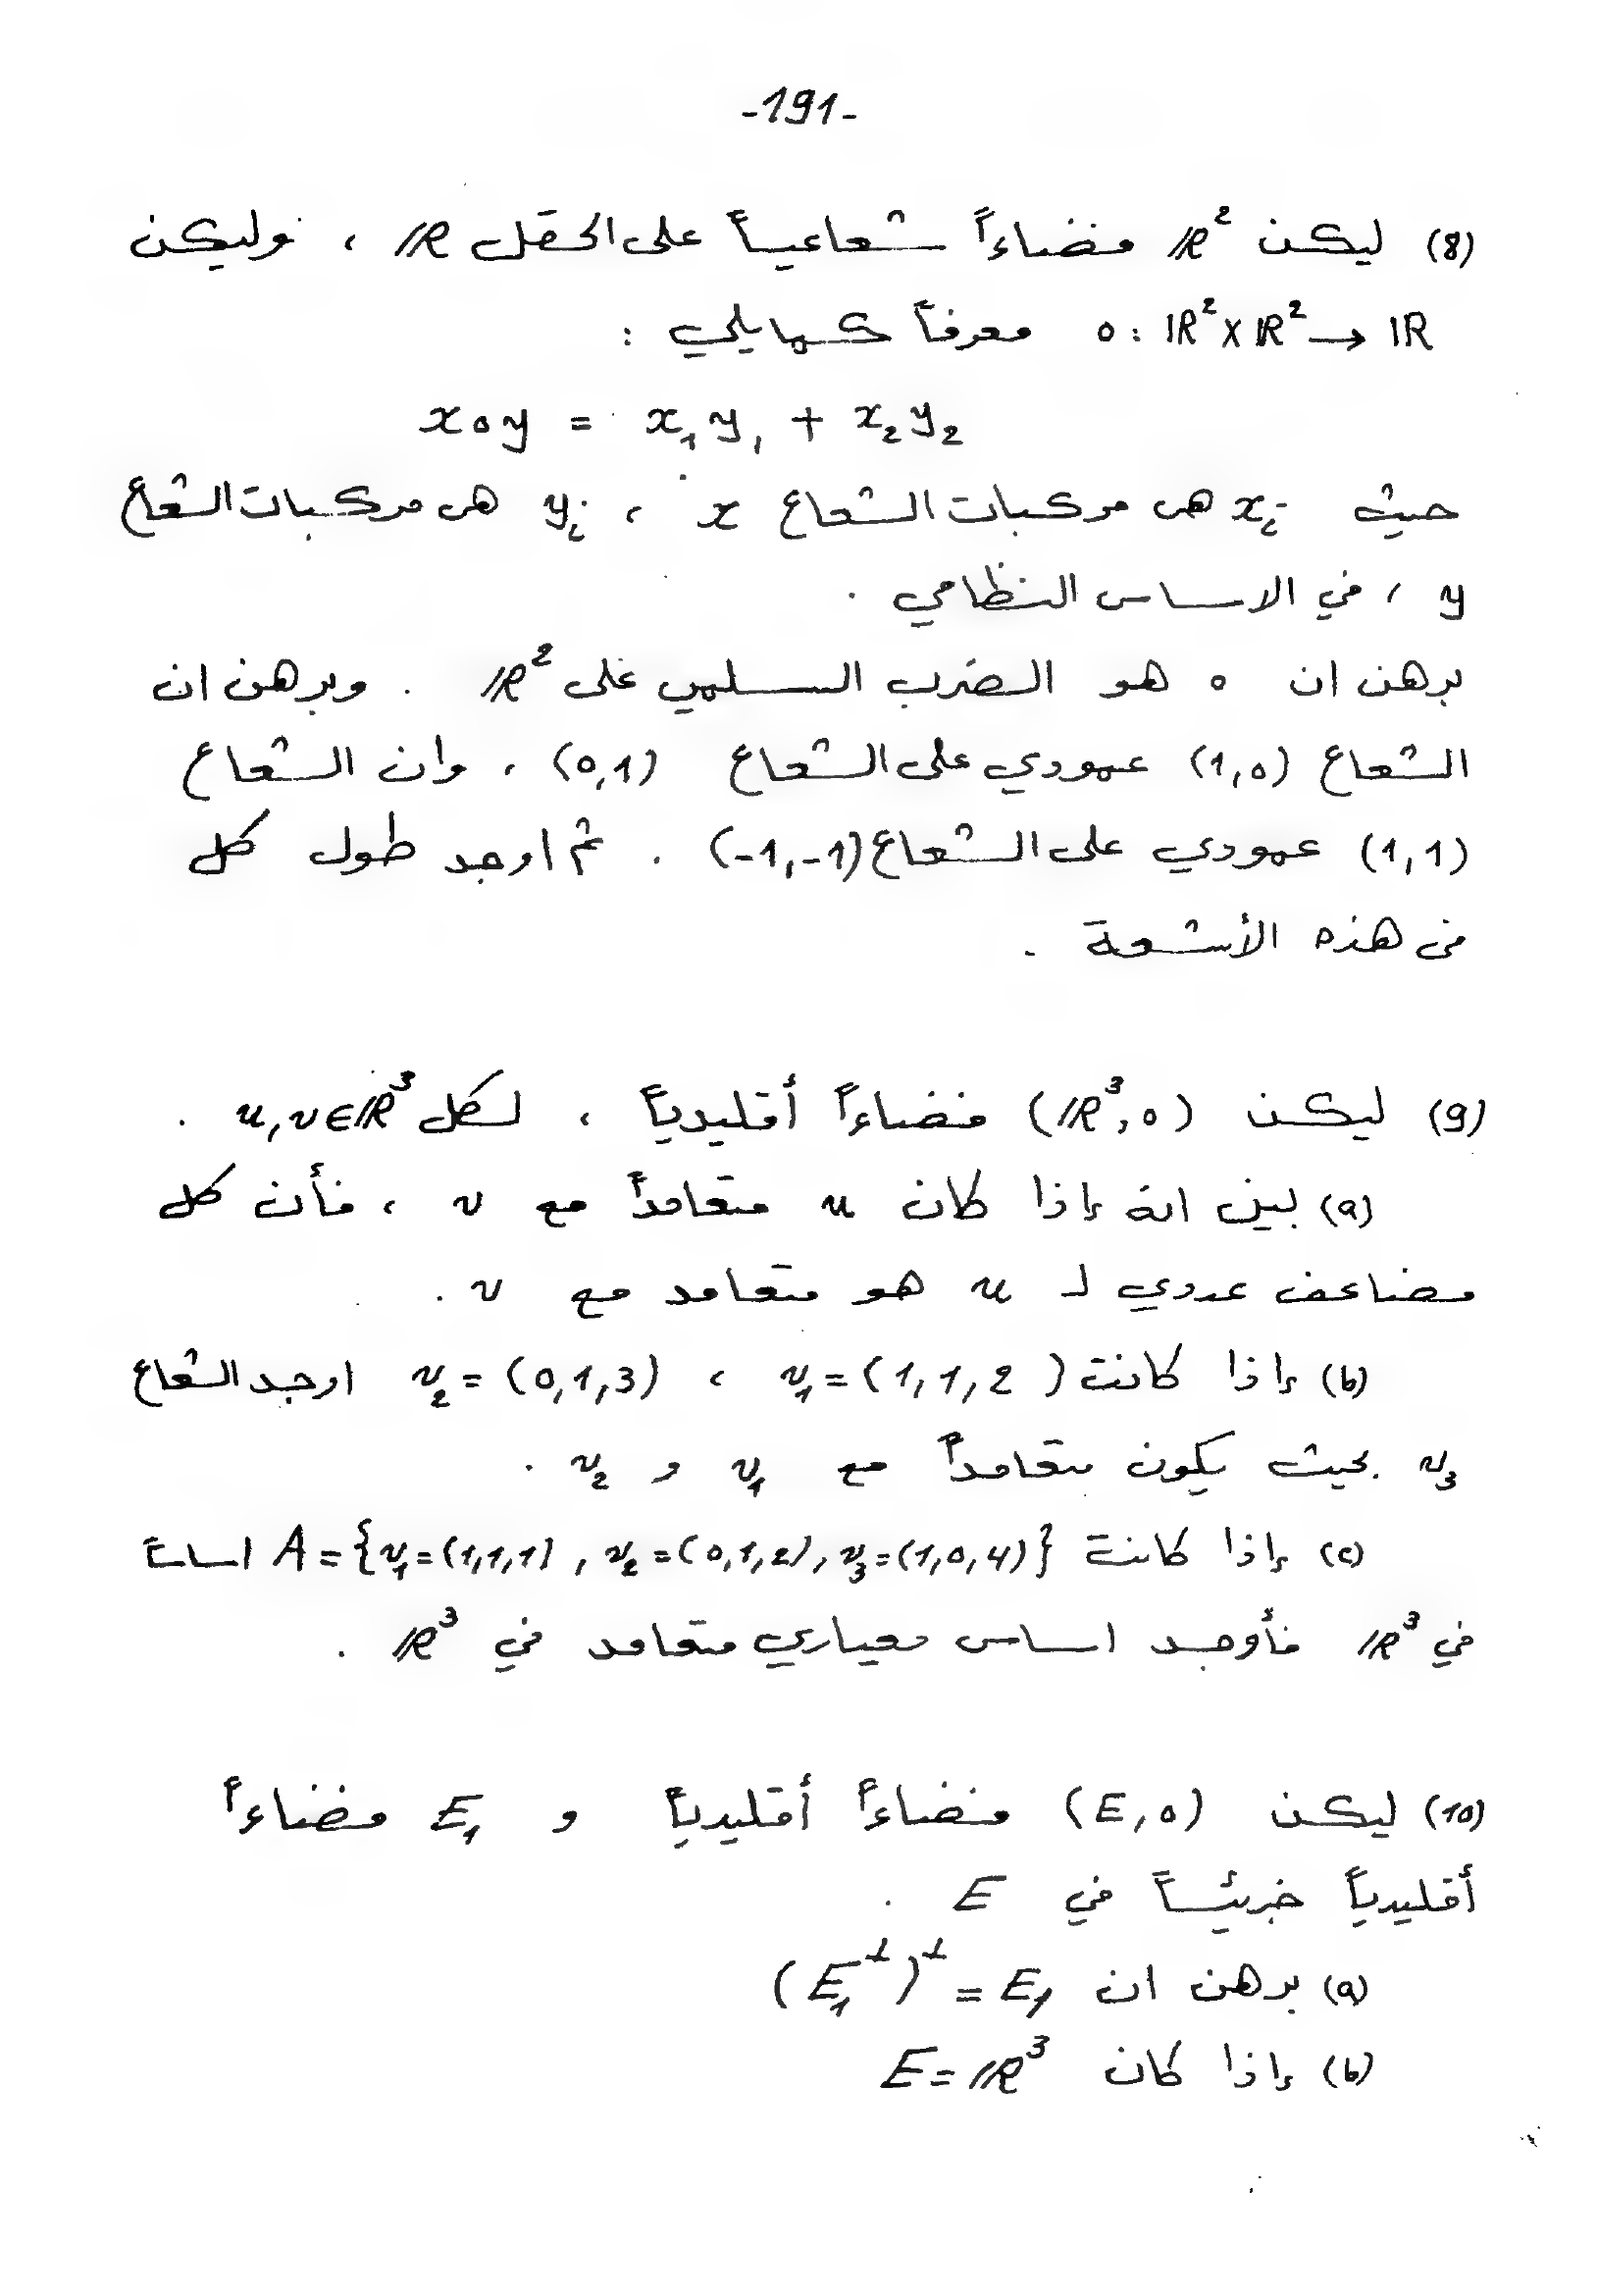 -191-
(8) ليكن ℝ² فضاءاً شعاعياً على الحقل ℝ ، وليكن
∘ : ℝ² × ℝ² → ℝ معرفاً كما يلي :
x∘y = x₁y₁ + x₂y₂
حيث xᵢ هي مركبات الشعاع x ، yᵢ هي مركبات الشعاع
y ، في الاساس النظامي .
برهن ان ∘ هو الضرب السلمي على ℝ² . وبرهن ان
الشعاع (1,0) عمودي على الشعاع (0,1) ، وان الشعاع
(1,1) عمودي على الشعاع (-1,-1) . ثم اوجد طول كل
من هذه الأشعة .
(9) ليكن (ℝ³,∘) فضاءاً أقليدياً ، لكل u,v∈ℝ³ .
(a) بين انه إذا كان u متعامداً مع v ، فأن كل
مضاعف عددي لـ u هو متعامد مع v .
(b) إذا كانت v₁=(1,1,2) ، v₂=(0,1,3) اوجد الشعاع
v₃ بحيث يكون متعامداً مع v₁ و v₂ .
(c) إذا كانت A={v₁=(1,1,1), v₂=(0,1,2), v₃=(1,0,4)} اساساً
في ℝ³ فأوجد اساس معياري متعامد في ℝ³ .
(10) ليكن (E,∘) فضاءاً أقليدياً و E₁ فضاءاً
أقليدياً جزئياً في E .
(a) برهن ان (E₁^⊥)^⊥ = E₁
(b) إذا كان E=ℝ³